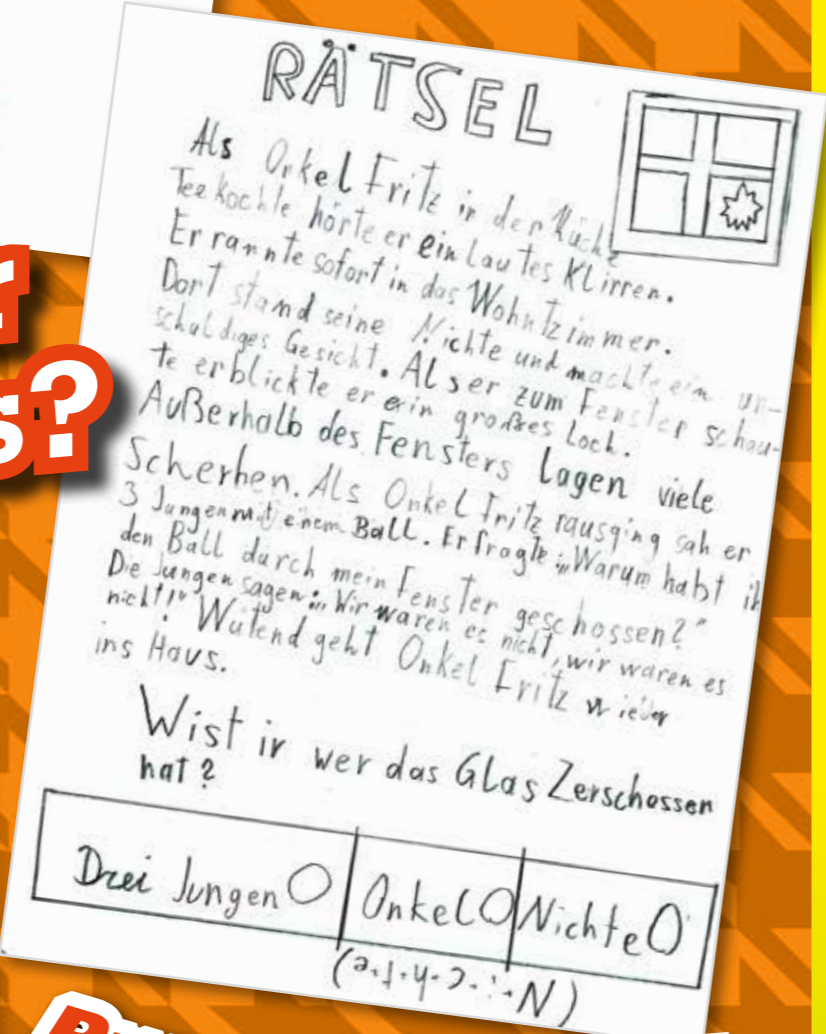 RÄTSEL
Als Onkel Fritz in der Küche
Tee kochte hörte er ein lautes Klirren.
Er rannte sofort in das Wohntzimmer.
Dort stand seine Nichte und machte ein un-
schuldiges Gesicht. Als er zum Fenster schau-
te erblickte er ein großes Loch.
Außerhalb des Fensters lagen viele
Scherben. Als Onkel Fritz rausging sah er
3 Jungen mit einem Ball. Er fragte: „Warum habt ih
den Ball durch mein Fenster geschossen?"
Die Jungen sagen: „Wir waren es nicht, wir waren es
nicht!" Wütend geht Onkel Fritz wieder
ins Haus.
Wist ir wer das Glas Zerschossen
hat?
Drei Jungen Onkel Nichte
(N-i-c-h-t-e)
s?